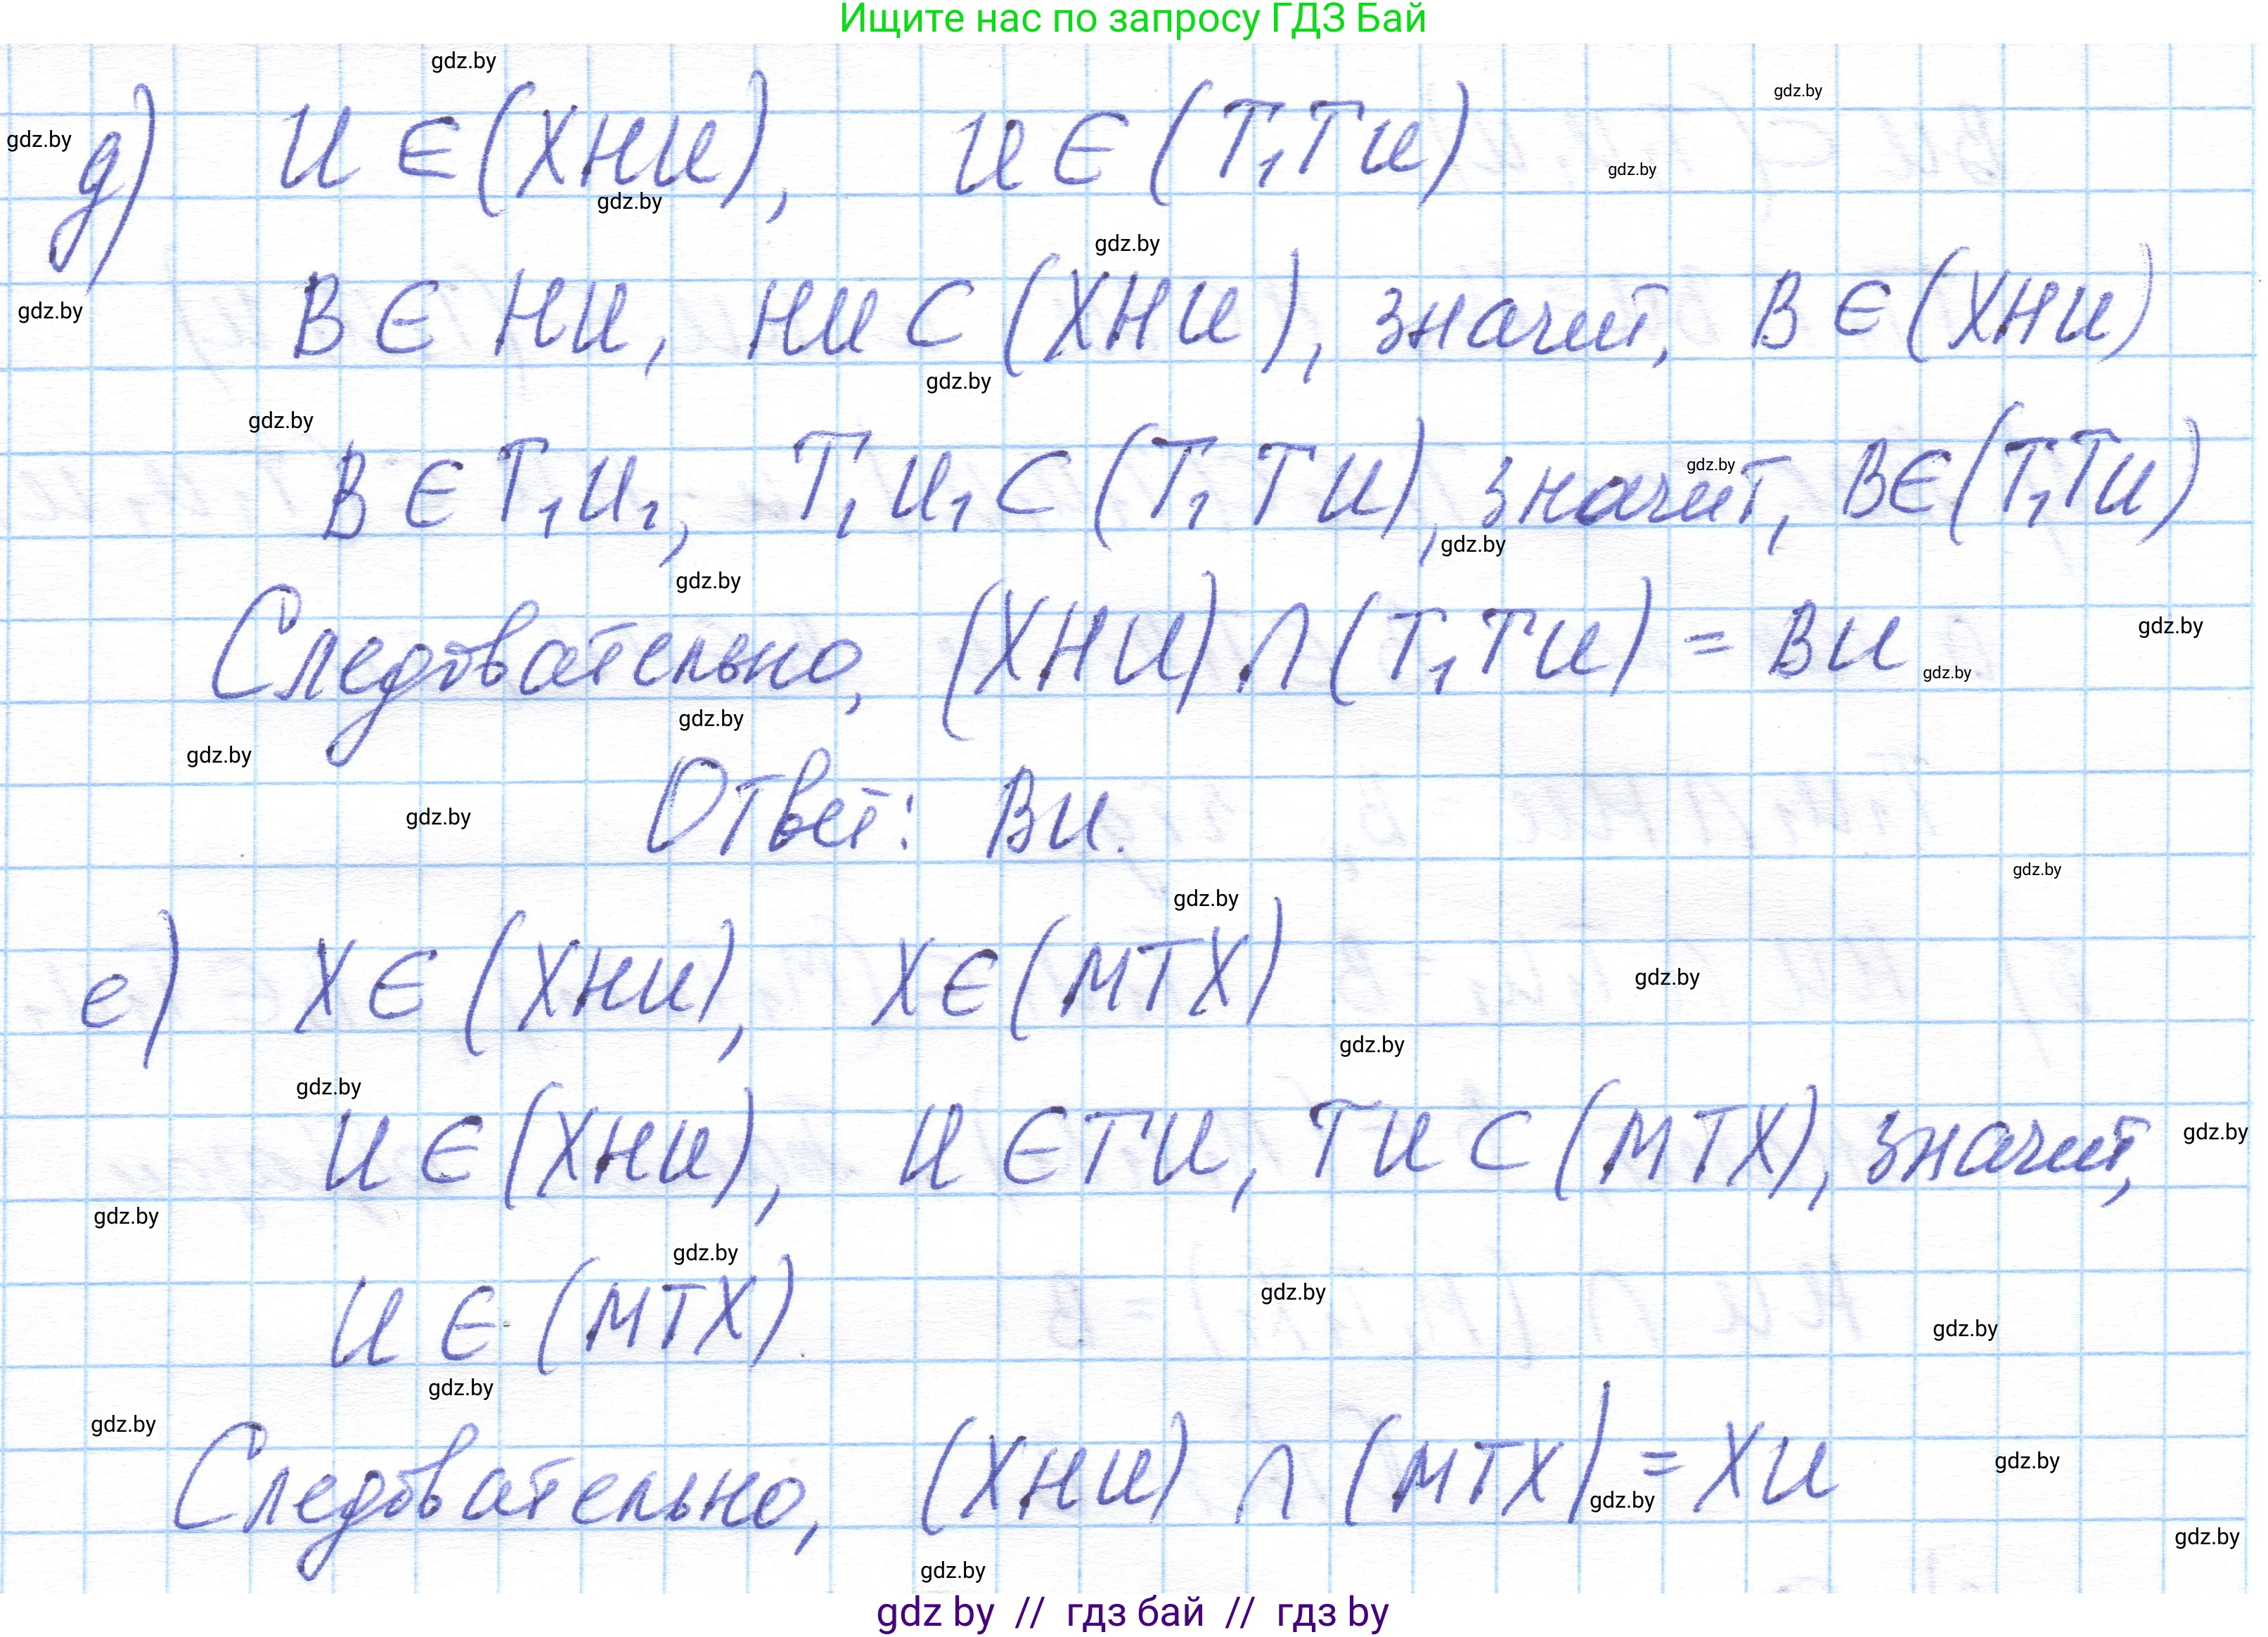 Ищите нас по запросу ГДЗ Бай
д) И ∈ (ХНИ), И ∈ (Т₁ТИ)
В ∈ НИ, НИ ⊂ (ХНИ), значит, В ∈ (ХНИ)
В ∈ Т₁И₁, Т₁И₁ ⊂ (Т₁ТИ), значит, В ∈ (Т₁ТИ)
Следовательно, (ХНИ) ∩ (Т₁ТИ) = ВИ
Ответ: ВИ.
е) Х ∈ (ХНИ), Х ∈ (МТХ)
И ∈ (ХНИ), И ∈ ТИ, ТИ ⊂ (МТХ), значит,
И ∈ (МТХ).
Следовательно, (ХНИ) ∩ (МТХ) = ХИ
gdz by // гдз бай // гдз by